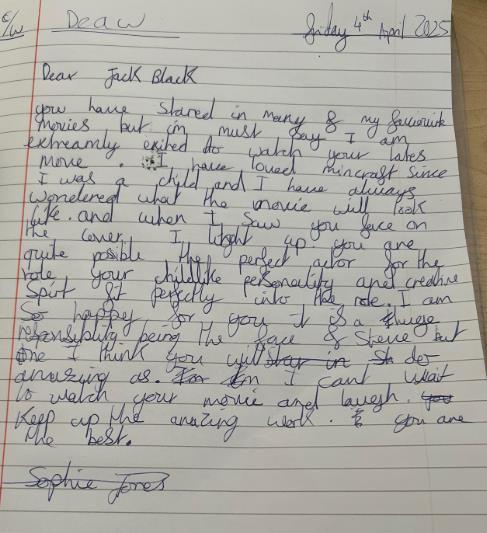 C/W Deaw Friday 4th April 2025
Dear Jack Black
you have stared in many of my faviourite
movies but i'm must say I am
extreamly exited to watch your lates
movie. I have loved mincraft since
I was a child and I have always
wondered what the movie will look
like and when I saw you face on
the cover I light up you are
quite possible the perfect actor for the
role your childlike personality and creative
spirit fit perfectly into the role. I am
so happy for you it is a huge
responsibility being the face of Steve but
one I think you will stay in do
amazing as. I cant wait
to watch your movie and laugh. you
Keep up the amazing work. you are
the best.
Sophie Jones